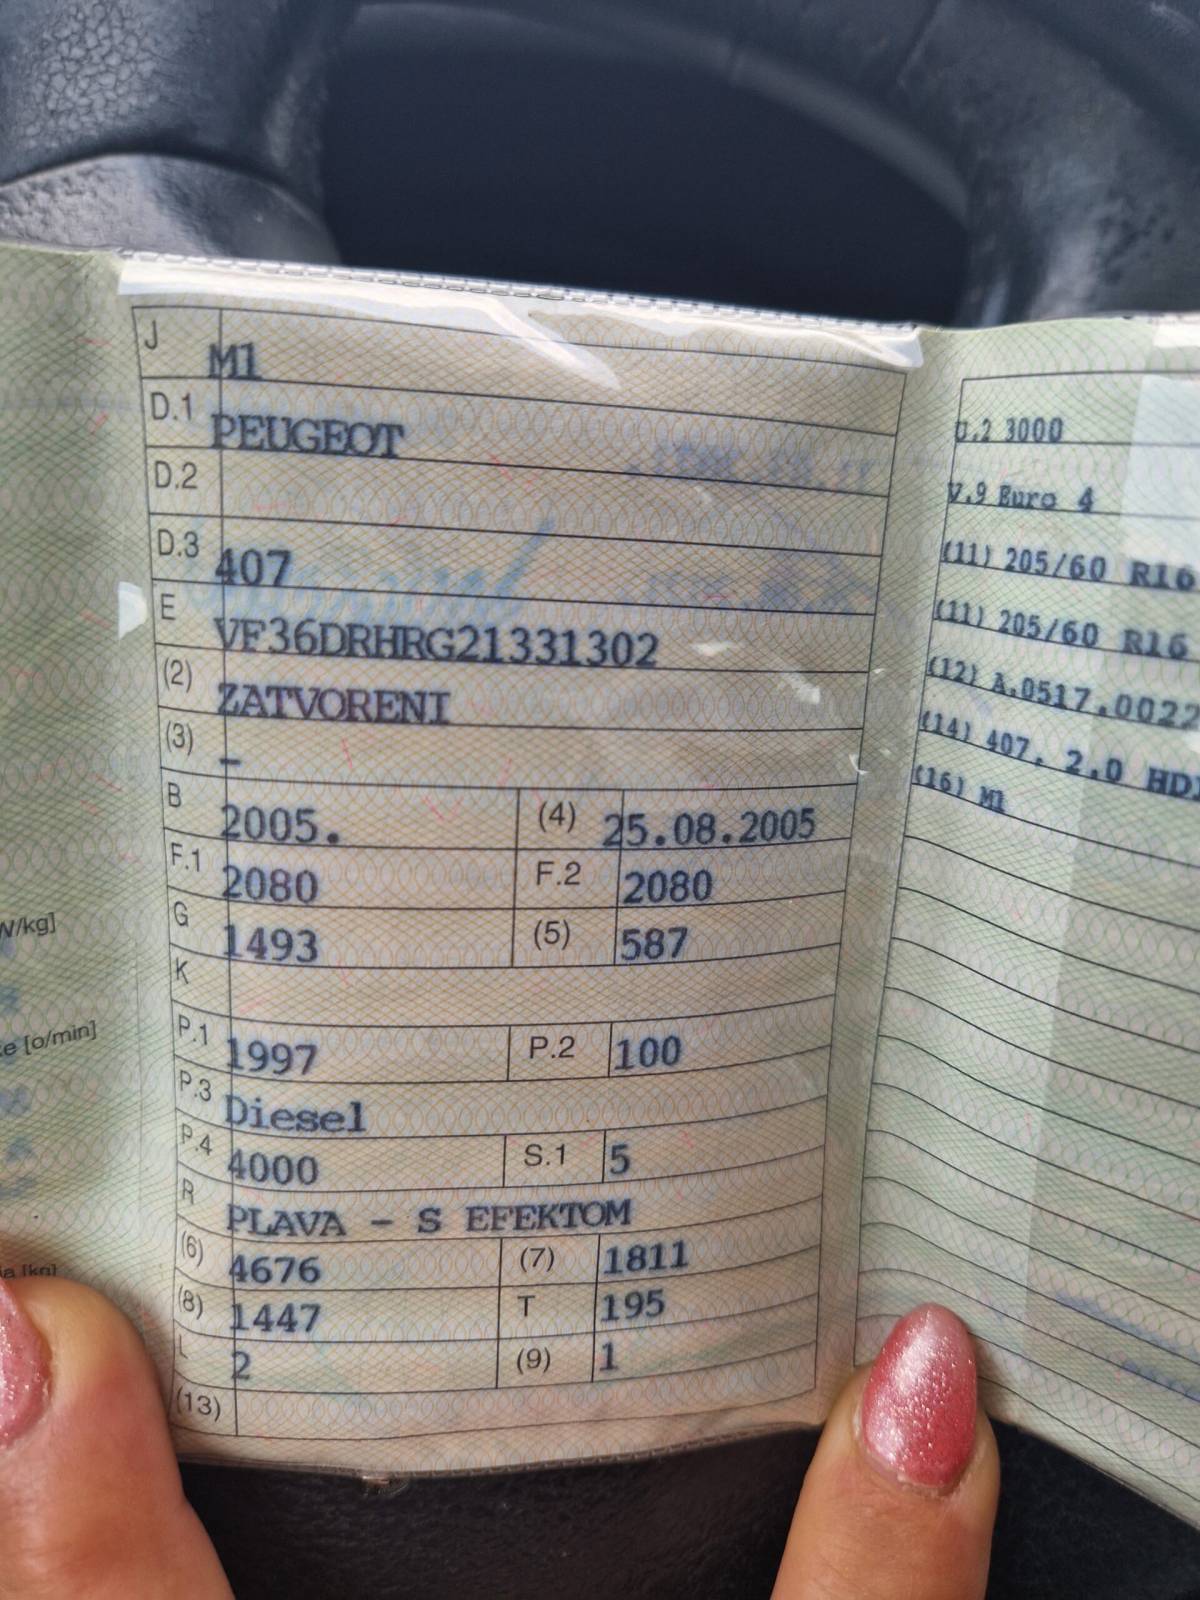 J M1
D.1 PEUGEOT
D.2
D.3 407
E VF36DRHRG21331302
(2) ZATVORENI
(3) –
B 2005. (4) 25.08.2005
F.1 2080 F.2 2080
G 1493 (5) 587
K
P.1 1997 P.2 100
P.3 Diesel
P.4 4000 S.1 5
R PLAVA – S EFEKTOM
(6) 4676 (7) 1811
(8) 1447 T 195
L 2 (9) 1
(13)
W/kg]
[o/min]
[kg]
U.2 3000
V.9 Euro 4
(11) 205/60 R16
(11) 205/60 R16
(12) A.0517.0022
(14) 407. 2.0 HDI
(16) M1